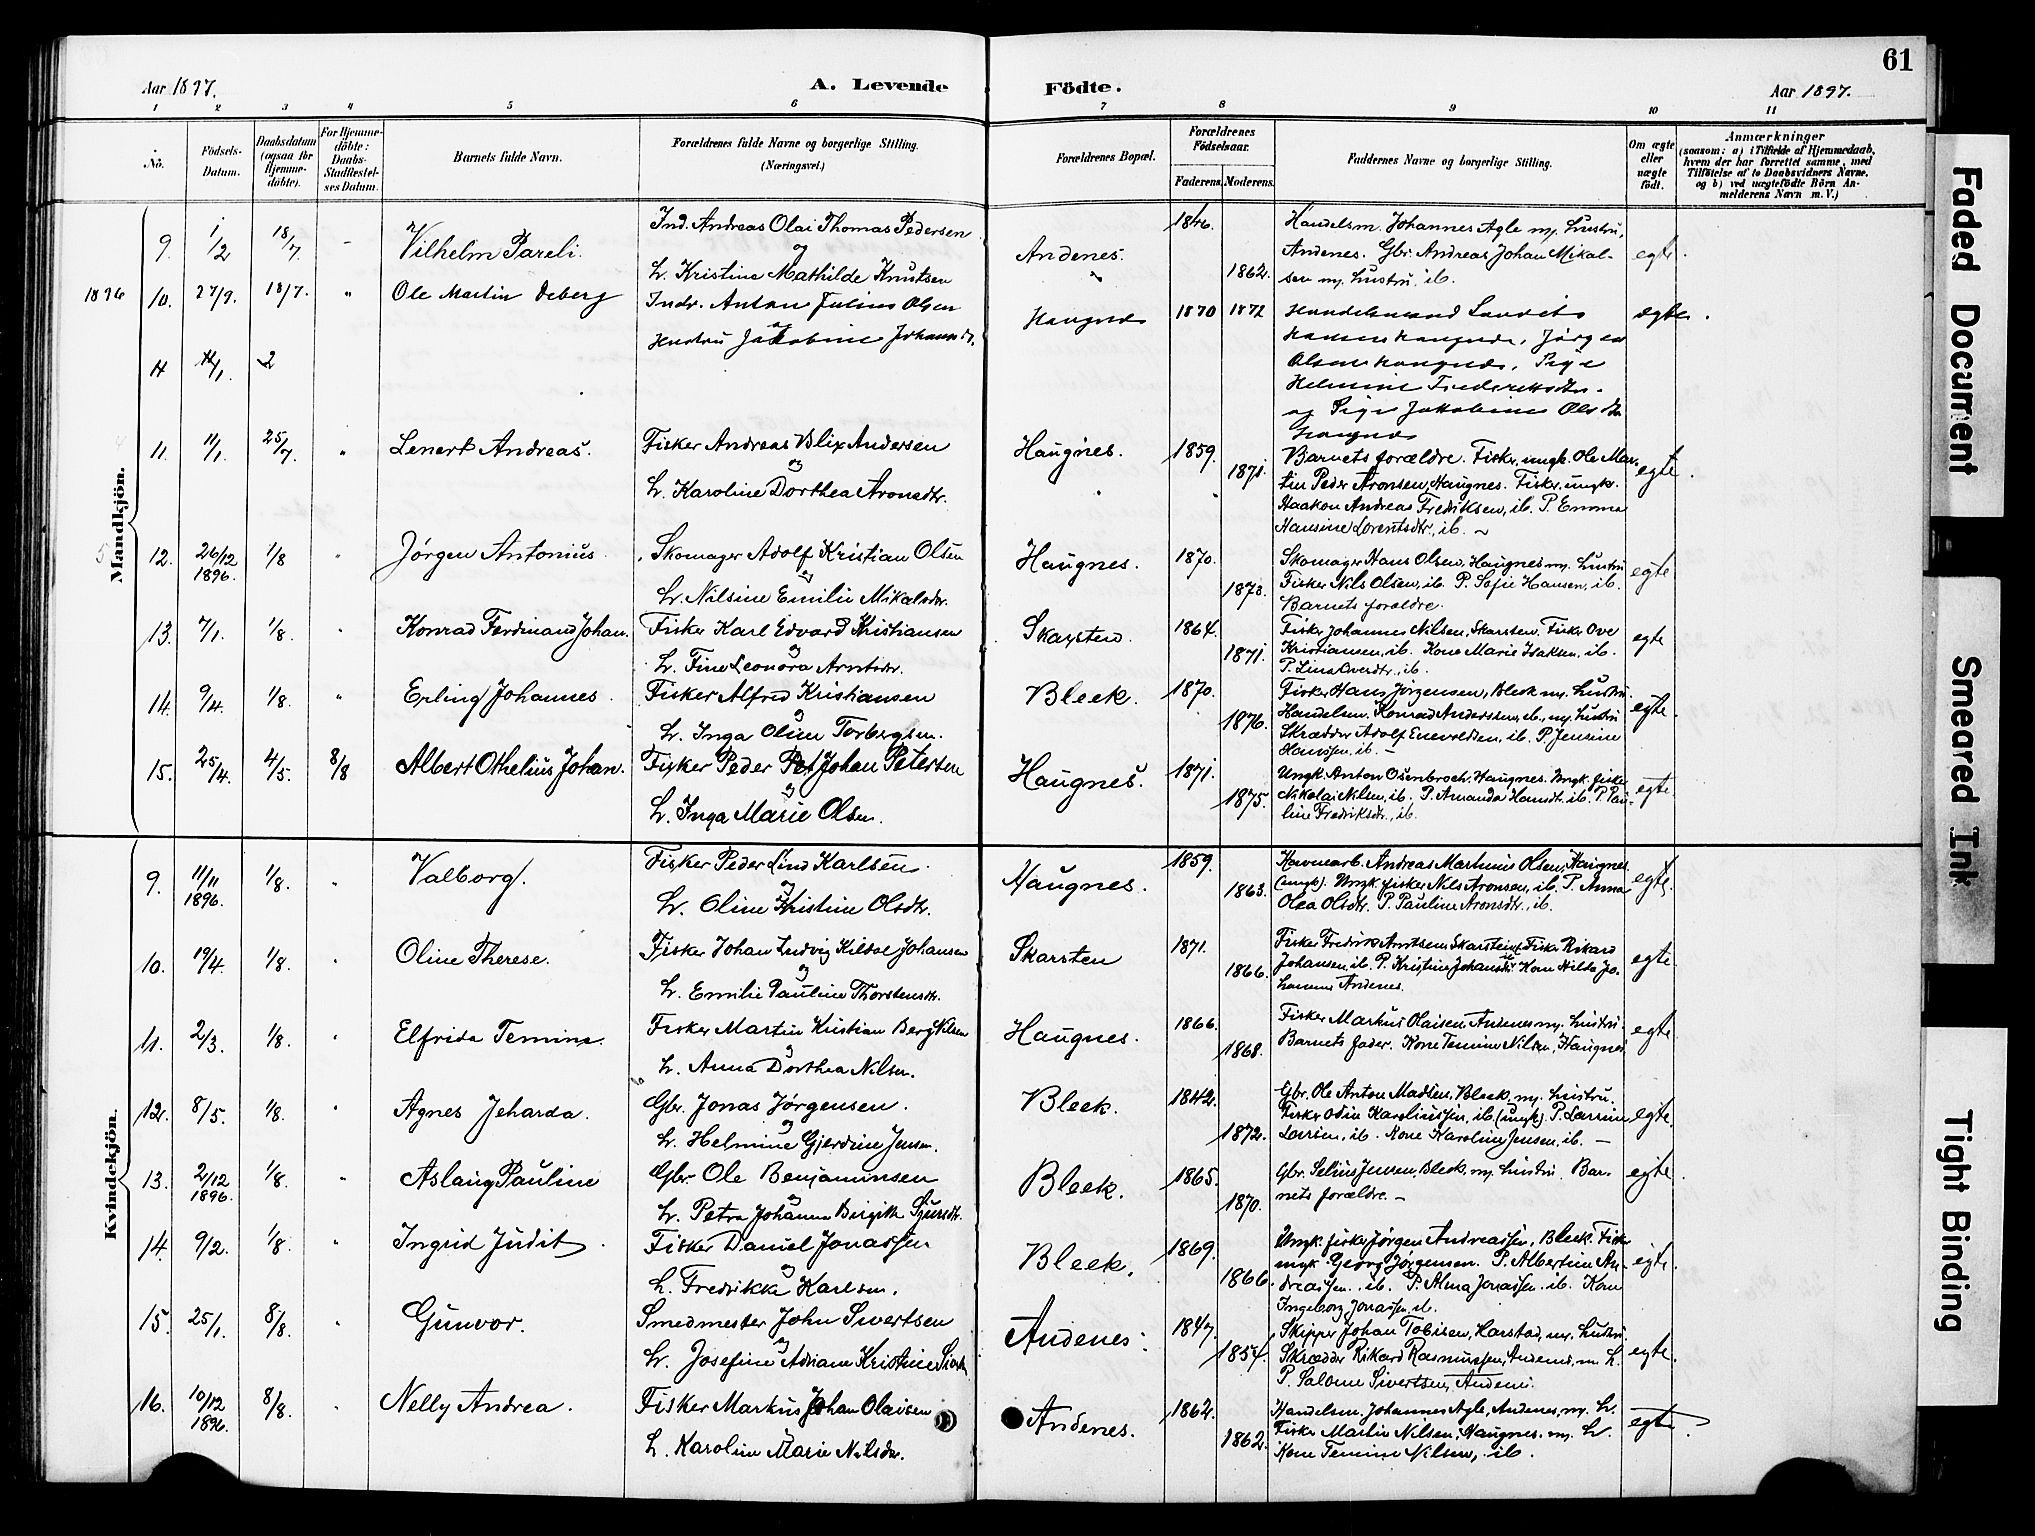 61
Aar 1897.
A. Levende
Födte.
Aar 1897.
1 2 3 4 5 6 7 8 9 10 11
No.
Födsels-
Datum.
Daabsdatum
(ogsaa for
Hjemme-
döbte).
For Hjemme-
döbte:
Daabs-
Stadfæstel-
ses Datum.
Barnets fulde Navn.
Forældrenes fulde Navne og borgerlige Stilling.
(Næringsvei.)
Forældrenes Bopæl.
Forældrenes
Födselsaar.
Faderens. Moderens.
Faddernes Navne og borgerlige Stilling.
Om ægte
eller
uægte
födt.
Anmærkninger
(saasom: a) i Tilfælde af Hjemmedaab,
hvem der har forrettet samme, med
Tilföielse af to Daabsvidners Navne,
og b) ved uægtefödte Börn An-
melderens Navn m. V.)
Mandkjön.
9. 1/2 18/7 - Vilhelm Pareli
Ind. Andreas Olai Thomas Pedersen
og
h. Kristine Mathilde Knutsen
Andenes.
1846.
1862.
Handelsm. Johannes Agle m. hustru,
Andenes. Gbr. Andreas Johan Mikal-
sen m. hustru, ib.
egte.
1896 10. 27/9. 18/7. " Ole Martin Deberg
Indr. Anton Julius Olsen
og
Hustru Jakobine Johannsdtr.
Haugnes
1870 1872
Handelsmand Lauvits
Hansen Haugnes, Jørgen
Olsen Haugnes, Pige
Helmine Frederiksdtr.
og Pige Jakobine Olsdtr
Haugnes
ægte.
11 11/1. 2
11. 11/1. 25/7. " Lenert Andreas.
Fisker Andreas Blix Andersen
og
h. Karoline Dorthea Aronsdtr.
Haugnes.
1859.
1871.
Barnets forældre. Fisker, ungk. Ole Mar-
tin Peder Aronsen, Haugnes. Fisker, ungkr.
Haakon Andreas Fredriksen, ib. P. Emma
Hansine Lorentsdtr., ib. -
egte.
12. 26/12 1896. 1/8 " Jørgen Antonius.
Skomager Adolf Kristian Olsen
og
h. Nilsine Emilie Mikalsdtr.
Haugnes.
1870.
1873.
Skomager Hans Olsen, Haugnes m. hustru
Fisker Nils Olsen, ib. P. Sofie Hansen, ib.
Barnets forældre.
egte
13. 7/1. 1/8. " Konrad Ferdinand Johan.
Fisker Karl Edvard Kristiansen
og
h. Fine Leonora Arntsdtr.
Skarsten.
1864.
1871.
Fisker Johannes Nilsen, Skarsten. Fisker Ove
Kristiansen, ib. Kone Marie Isaksen, ib.
P. Lina Overdtr., ib.
egte
14. 9/4. 1/8. " Erling Johannes.
Fisker Alfred Kristiansen
og
h. Inga Oline Torbergsen.
Bleek.
1870.
1876.
Fisker Hans Jørgensen, Bleek m. hustru.
Handelsm. Konrad Anderssen, ib., m. hustru
Skrædder Adolf Enevoldsen, ib. P. Jensine
Hanssen, ib. -
egte.
15. 25/4. 4/5. 8/8 Albert Othelius Johan.
Fisker Peder Johan Petersen
og
h. Inga Marie Olsen.
Haugnes.
1871.
1875.
Ungk. Anton Osenbroch, Haugnes. Ungk. fisker
Nikolai Nilsen, ib. P. Amanda Hansdtr. ib. P. Pau-
line Fredriksdtr., ib.
egte
Kvindekjön.
9. 11/11 1896. 1/8. " Valborg.
Fisker Peder Lind Karlsen.
og
h. Oline Kristine Olsdtr.
Haugnes.
1859.
1863.
Havnearb. Andreas Martinus Olsen, Haugnes.
(ungk). Ungk. fisker Nils Aronsen, ib. P. Anna
Olea Olsdtr. P. Pauline Aronsdtr., ib.
egte.
10. 19/4. 1/8. " Oline Therese.
Fisker Johan Ludvig Kildal Johansen
og
h. Emilie Pauline Thorstensdtr.
Skarsten
1871.
1866.
Fisker Fredrik Arntsen, Skarsten. Fisker Rikard
Johansen, ib. P. Kristine Johansdtr. Kone Hilda Jo-
hannes Andenes.
egte.
11. 2/3. 1/8. " Elfrida Temina.
Fisker Martin Kristian Berg Nilsen
og
h. Anna Dorthea Nilsen.
Haugnes.
1866.
1868.
Fisker Markus Olaisen, Andenes m. hustru.
Barnets fader. Kone Temine Nilsen, Haugnes
egte.
12. 8/5. 1/8. " Agnes Jeharda.
Gbr. Jonas Jørgensen.
og
h. Helmine Gjerdine Jensen.
Bleek.
1842.
1872.
Gbr. Ole Anton Madsen, Bleek m. hustru.
Fisker Odin Karoliussen, ib. (ungk). P. Larrine
Larsen, ib. Kone Karoline Jensen, ib. -
egte.
13. 2/12 1896. 1/8. " Aslaug Pauline
Gbr. Ole Benjaminsen
og
h. Petra Johanna Birgitte Sjursdtr.
Bleek.
1865.
1870.
Gbr. Selius Jensen, Bleek, m. hustru. Bar-
nets forældre. -
egte.
14. 9/2. 1/8. " Ingrid Judit.
Fisker Daniel Jonassen
og
h. Fredrikke Karlsen.
Bleek.
1869.
1866.
Ungk. fisker Jørgen Andreassen, Bleek. Fisker
ungk Georg Jørgensen. P. Albertine An-
dreassen, ib. P. Alma Jonassen. ib. Kone
Ingeborg Jonassen, ib.
egte.
15. 25/1. 8/8. " Gunvor.
Smedmester John Sivertsen
og
h. Josefine Adriane Kristine
Andenes.
1847.
1854.
Skipper Johan Tobisen, Harstad, m. hustru.
Skrædder Rikard Rasmussen, Andenes, m. h.
P. Salome Sivertsen, Andenes.
egte.
16. 10/12 1896. 8/8. " Nelly Andrea.
Fisker Markus Johan Olaisen
og
h. Karoline Marie Nilsdtr.
Andenes.
1862.
1862.
Handelsm. Johannes Agle, Andenes, m. h.
Fisker Martin Nilsen, Haugnes. m. h.
Kone Temine Nilsen, ib.
egte.
Faded Document
Smeared Ink
Tight Binding